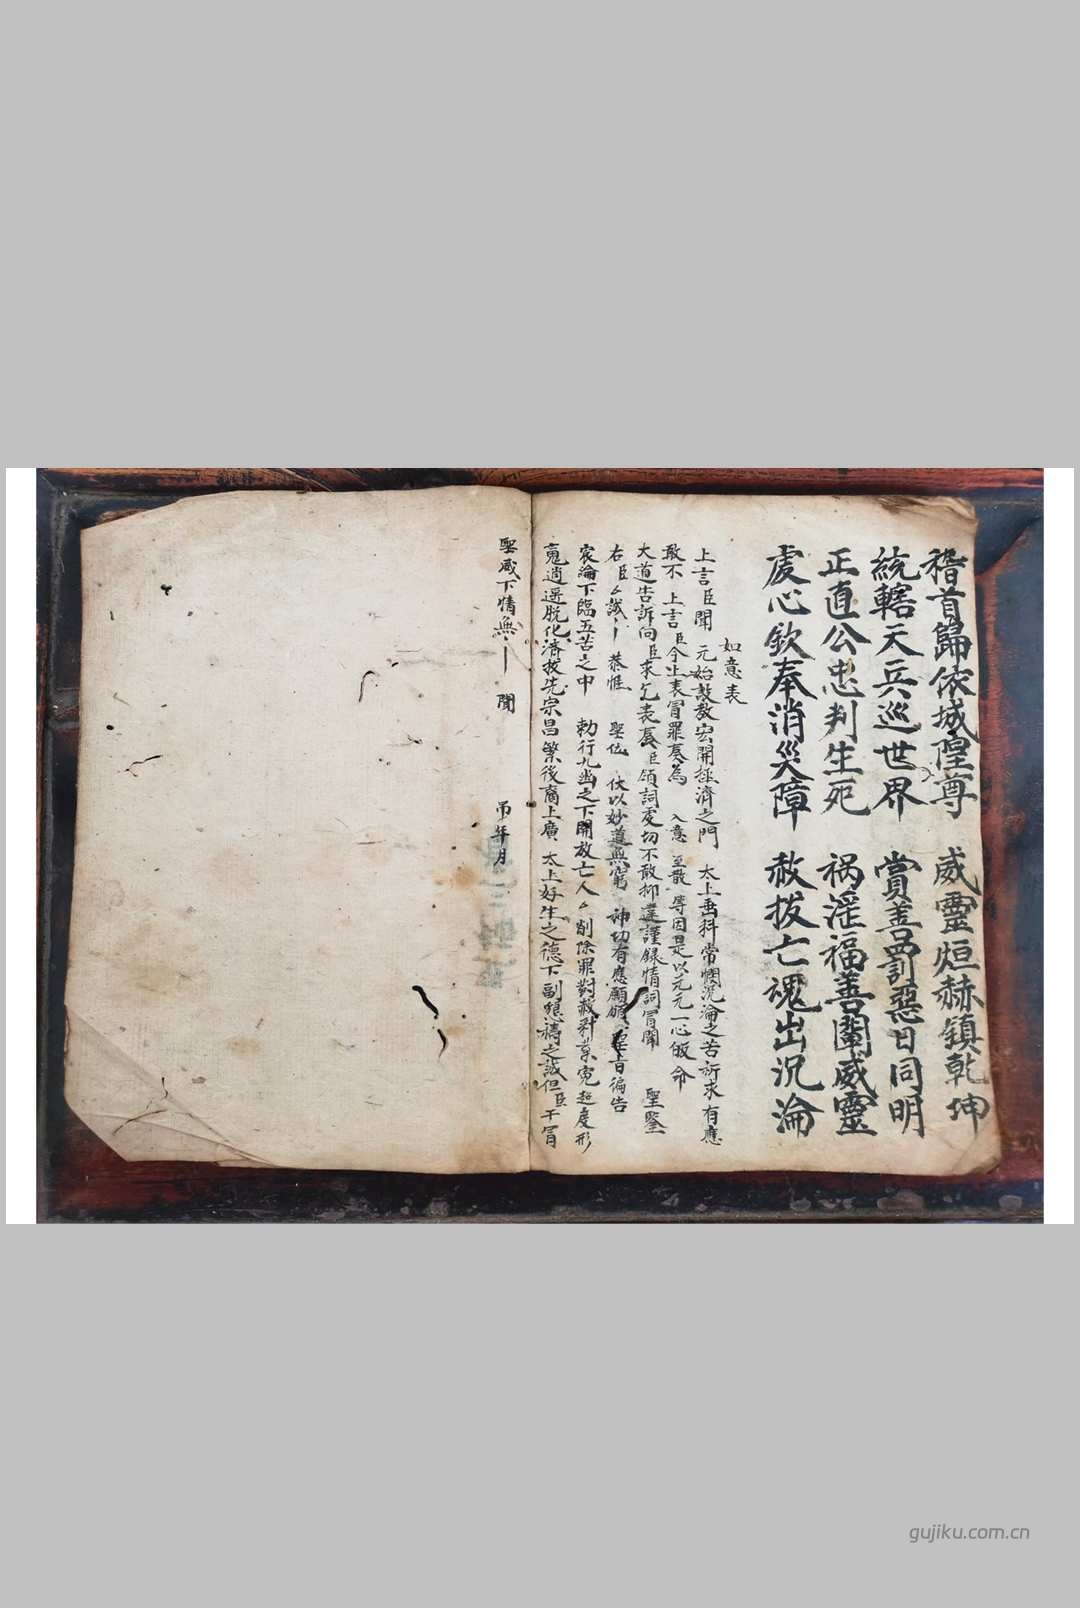 稽首歸依城隍尊　威靈烜赫鎮乾坤
統轄天兵巡世界　賞善罰惡日同明
正直公忠判生死　祸滛福善闡威靈
虔心欽奉消災障　赦拔亡魂出沉淪
如意表
上言臣聞　元始設教宏開拯濟之門　太上垂科常憫沉淪之苦祈求有應
敢不　上言臣今上表冒罪奏為　入意　至散　等因是以元元一心皈命
大道告訴向臣求乞表奏臣領詞虔切不敢抑違謹錄情詞冒聞　聖鑒
右臣々誠〡　恭惟　聖位　伏以妙道無窮　神功有應願頒　聖旨徧告
宸淪下臨五苦之中　勅行九幽之下開放亡人々削除罪對赦對業冤超度形
䰟逍遥脫化濟拔先宗昌繁後裔上廣　太上好生之德下副懇禱之誠但臣干冒
聖威下情無〡　聞　吊年月
gujiku.com.cn